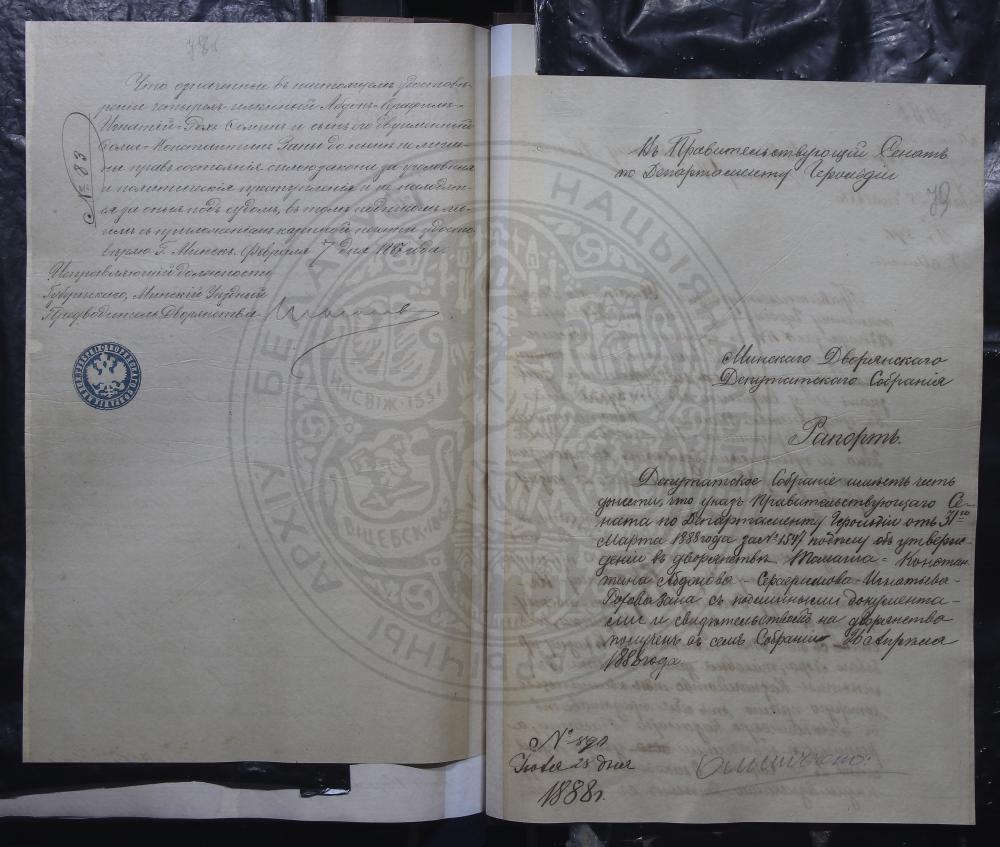 78
№ 83
Что означенные въ настоящемъ удостовѣ-
реніи четырех-именный Абдонъ-Серафимъ-
Игнатій-Рохъ Семинъ и сынъ его двуименный
Тома-Константинъ Заны до нынѣ не лише-
ны правъ состоянія силою закона за уголовныя
и политическія преступленія и не находят-
ся да нынѣ подъ судомъ, въ томъ подписомъ мо-
имъ съ приложеніемъ казенной печати удосто-
вѣряю Г. Минскъ. Февраля 7 дня 188 года.
Исправляющій должность
Губернскаго, Минскій Уѣздный
Предводитель Дворянства
79
Въ Правительствующій Сенатъ
по Департаменту Герольдіи
Минскаго Дворянскаго
Депутатскаго Собранія
Рапортъ.
Депутатское Собраніе имѣетъ честь
донести, что указъ Правительствующаго Се-
ната по Департаменту Герольдіи отъ 31го
Марта 1888 года за № 1547 по дѣлу объ утверж-
деніи въ дворянствѣ Томаша-Констан-
тина Абдонова-Серафимова-Игнатьева-
Рохова Зана съ подлинными документа-
ми и свидѣтельствомъ на дворянство
полученъ въ семъ Собраніи 26 апрѣля
1888 года.
№
28 дня
1888 г.
АРХІЎ БЕЛА НАЦЫЯНА РЫЧНЫ
НЯСВІЖ·155
ВІЦЕБСК·18